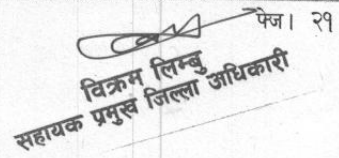 पेज। २१
विक्रम लिम्बु
सहायक प्रमुख जिल्ला अधिकारी